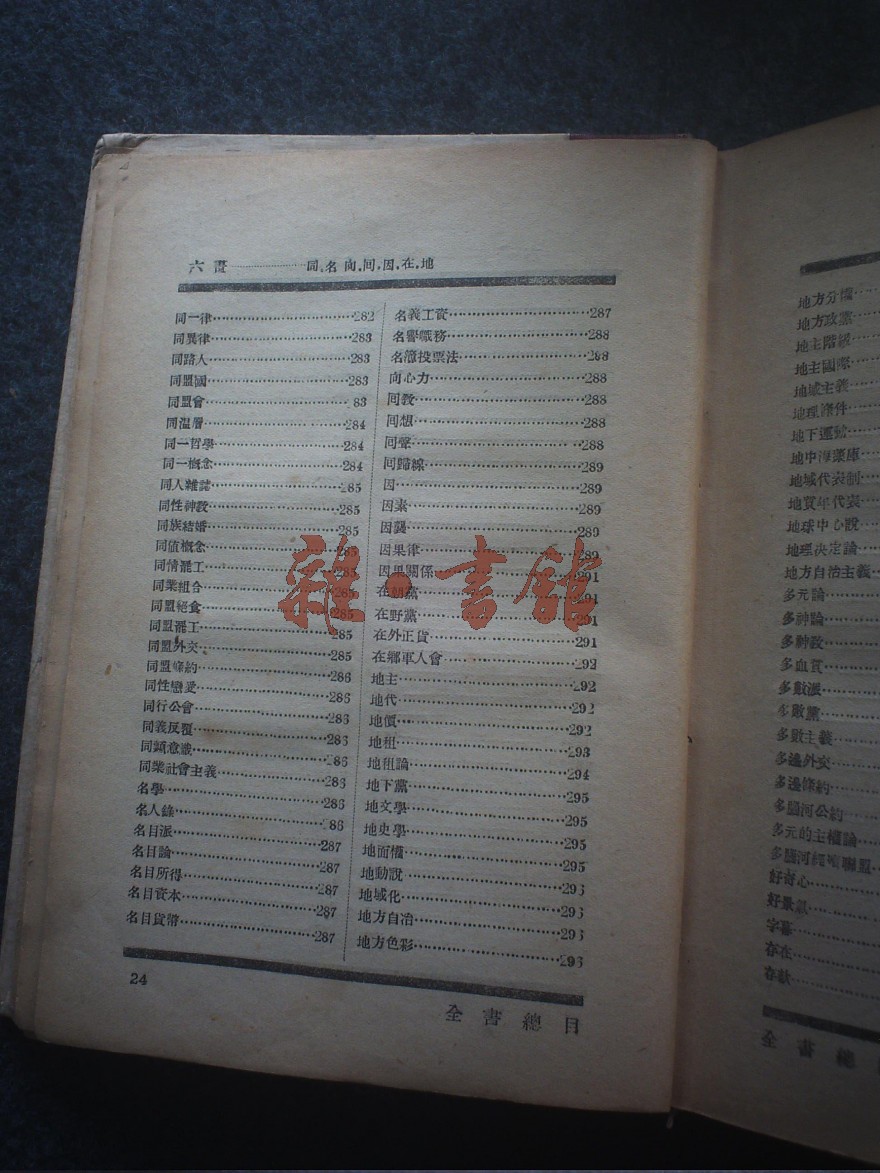 六畫……………同,名,向,回,因,在,地
同一律……282
同異律……283
同路人……283
同盟國……283
同盟會……83
同溫層……284
同一哲學……284
同一概念……284
同人雜誌……285
同性神教……285
同族結婚……285
同値概念……285
同情罷工……285
同業組合……285
同盟絕食……285
同盟罷工……285
同盟外交……285
同盟條約……286
同性戀愛……286
同行公會……286
同義反覆……286
同類意識……286
同業社會主義……286
名學……286
名人錄……86
名目派……287
名目論……287
名目所得……287
名目資本……287
名目貨幣……287
名義工資……287
名譽職務……288
名簿投票法……288
向心力……288
回教……288
回想……288
回聲……288
回歸線……289
因……289
因素……289
因襲……289
因果律……289
因果關係……291
在朝黨……291
在野黨……291
在外正貨……291
在鄉軍人會……292
地主……292
地代……292
地價……292
地租……293
地租論……294
地下黨……295
地文學……295
地史學……295
地面權……295
地動說……295
地域化……295
地方自治……295
地方色彩……295
24
全書總目
雜·書館
地方分權
地方政黨
地主階級
地主國際
地域主義
地理條件
地下運動
地域代表制
地球中心說
地理決定論
地方自治主義
多元論
多神論
多神教
多血質
多數派
多數黨
多數主義
多邊外交
多邊條約
多腦河公約
多元的主權論
好奇心
好景氣
字幕
存在
存款
全書總